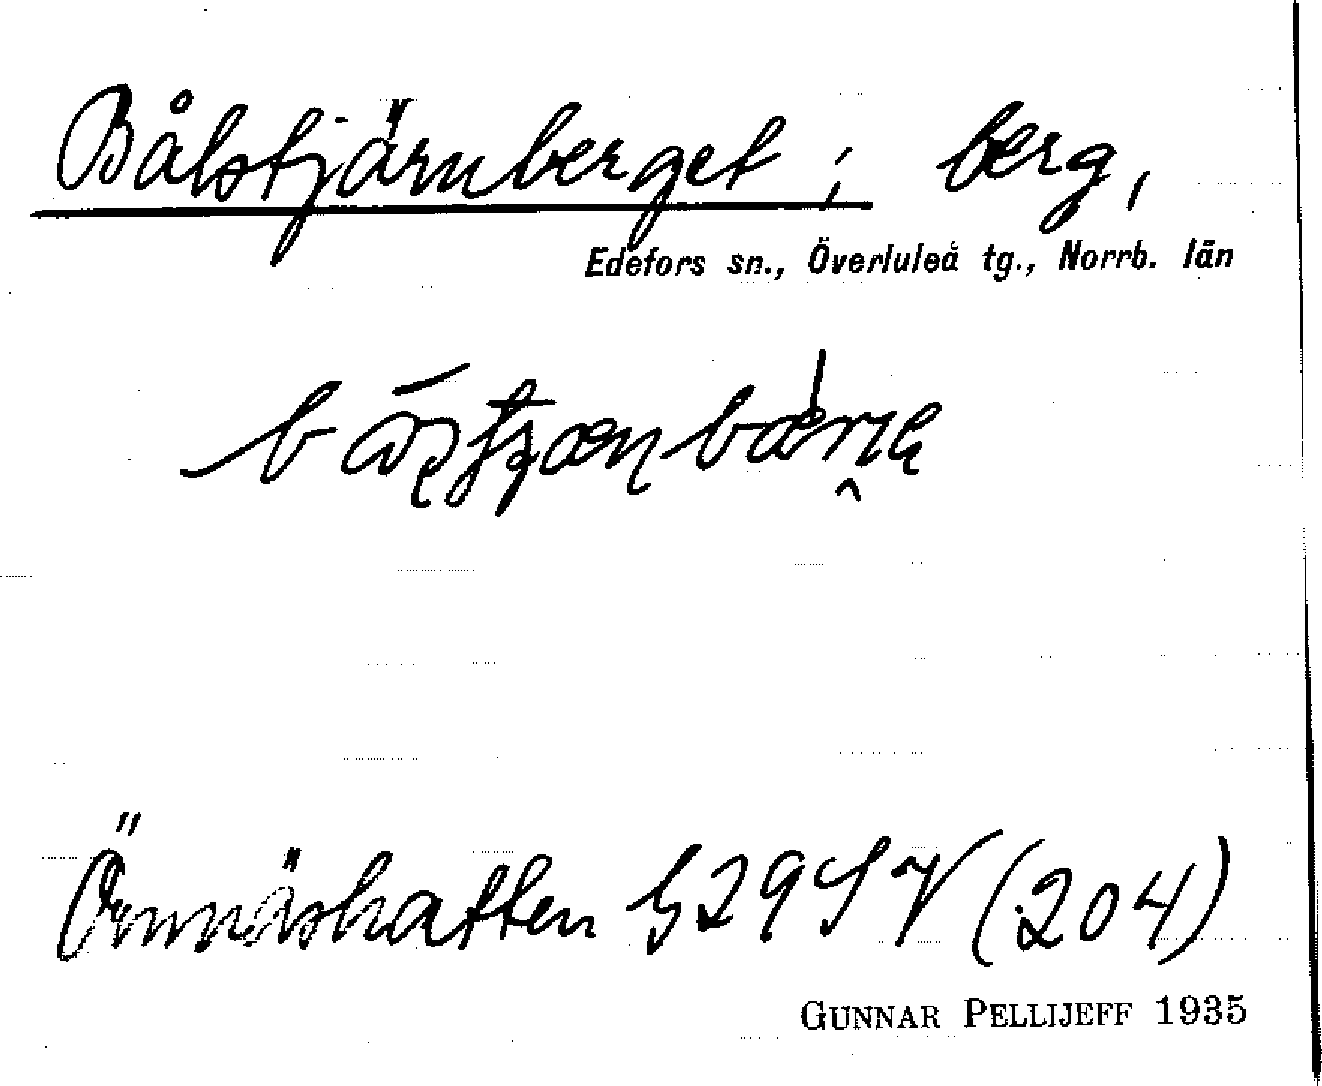 Bålstjärnberget; berg,
Edefors sn., Överluleå tg., Norrb. län
Örnnäshatten G29SV (204)
GUNNAR PELLIJEFF 1935